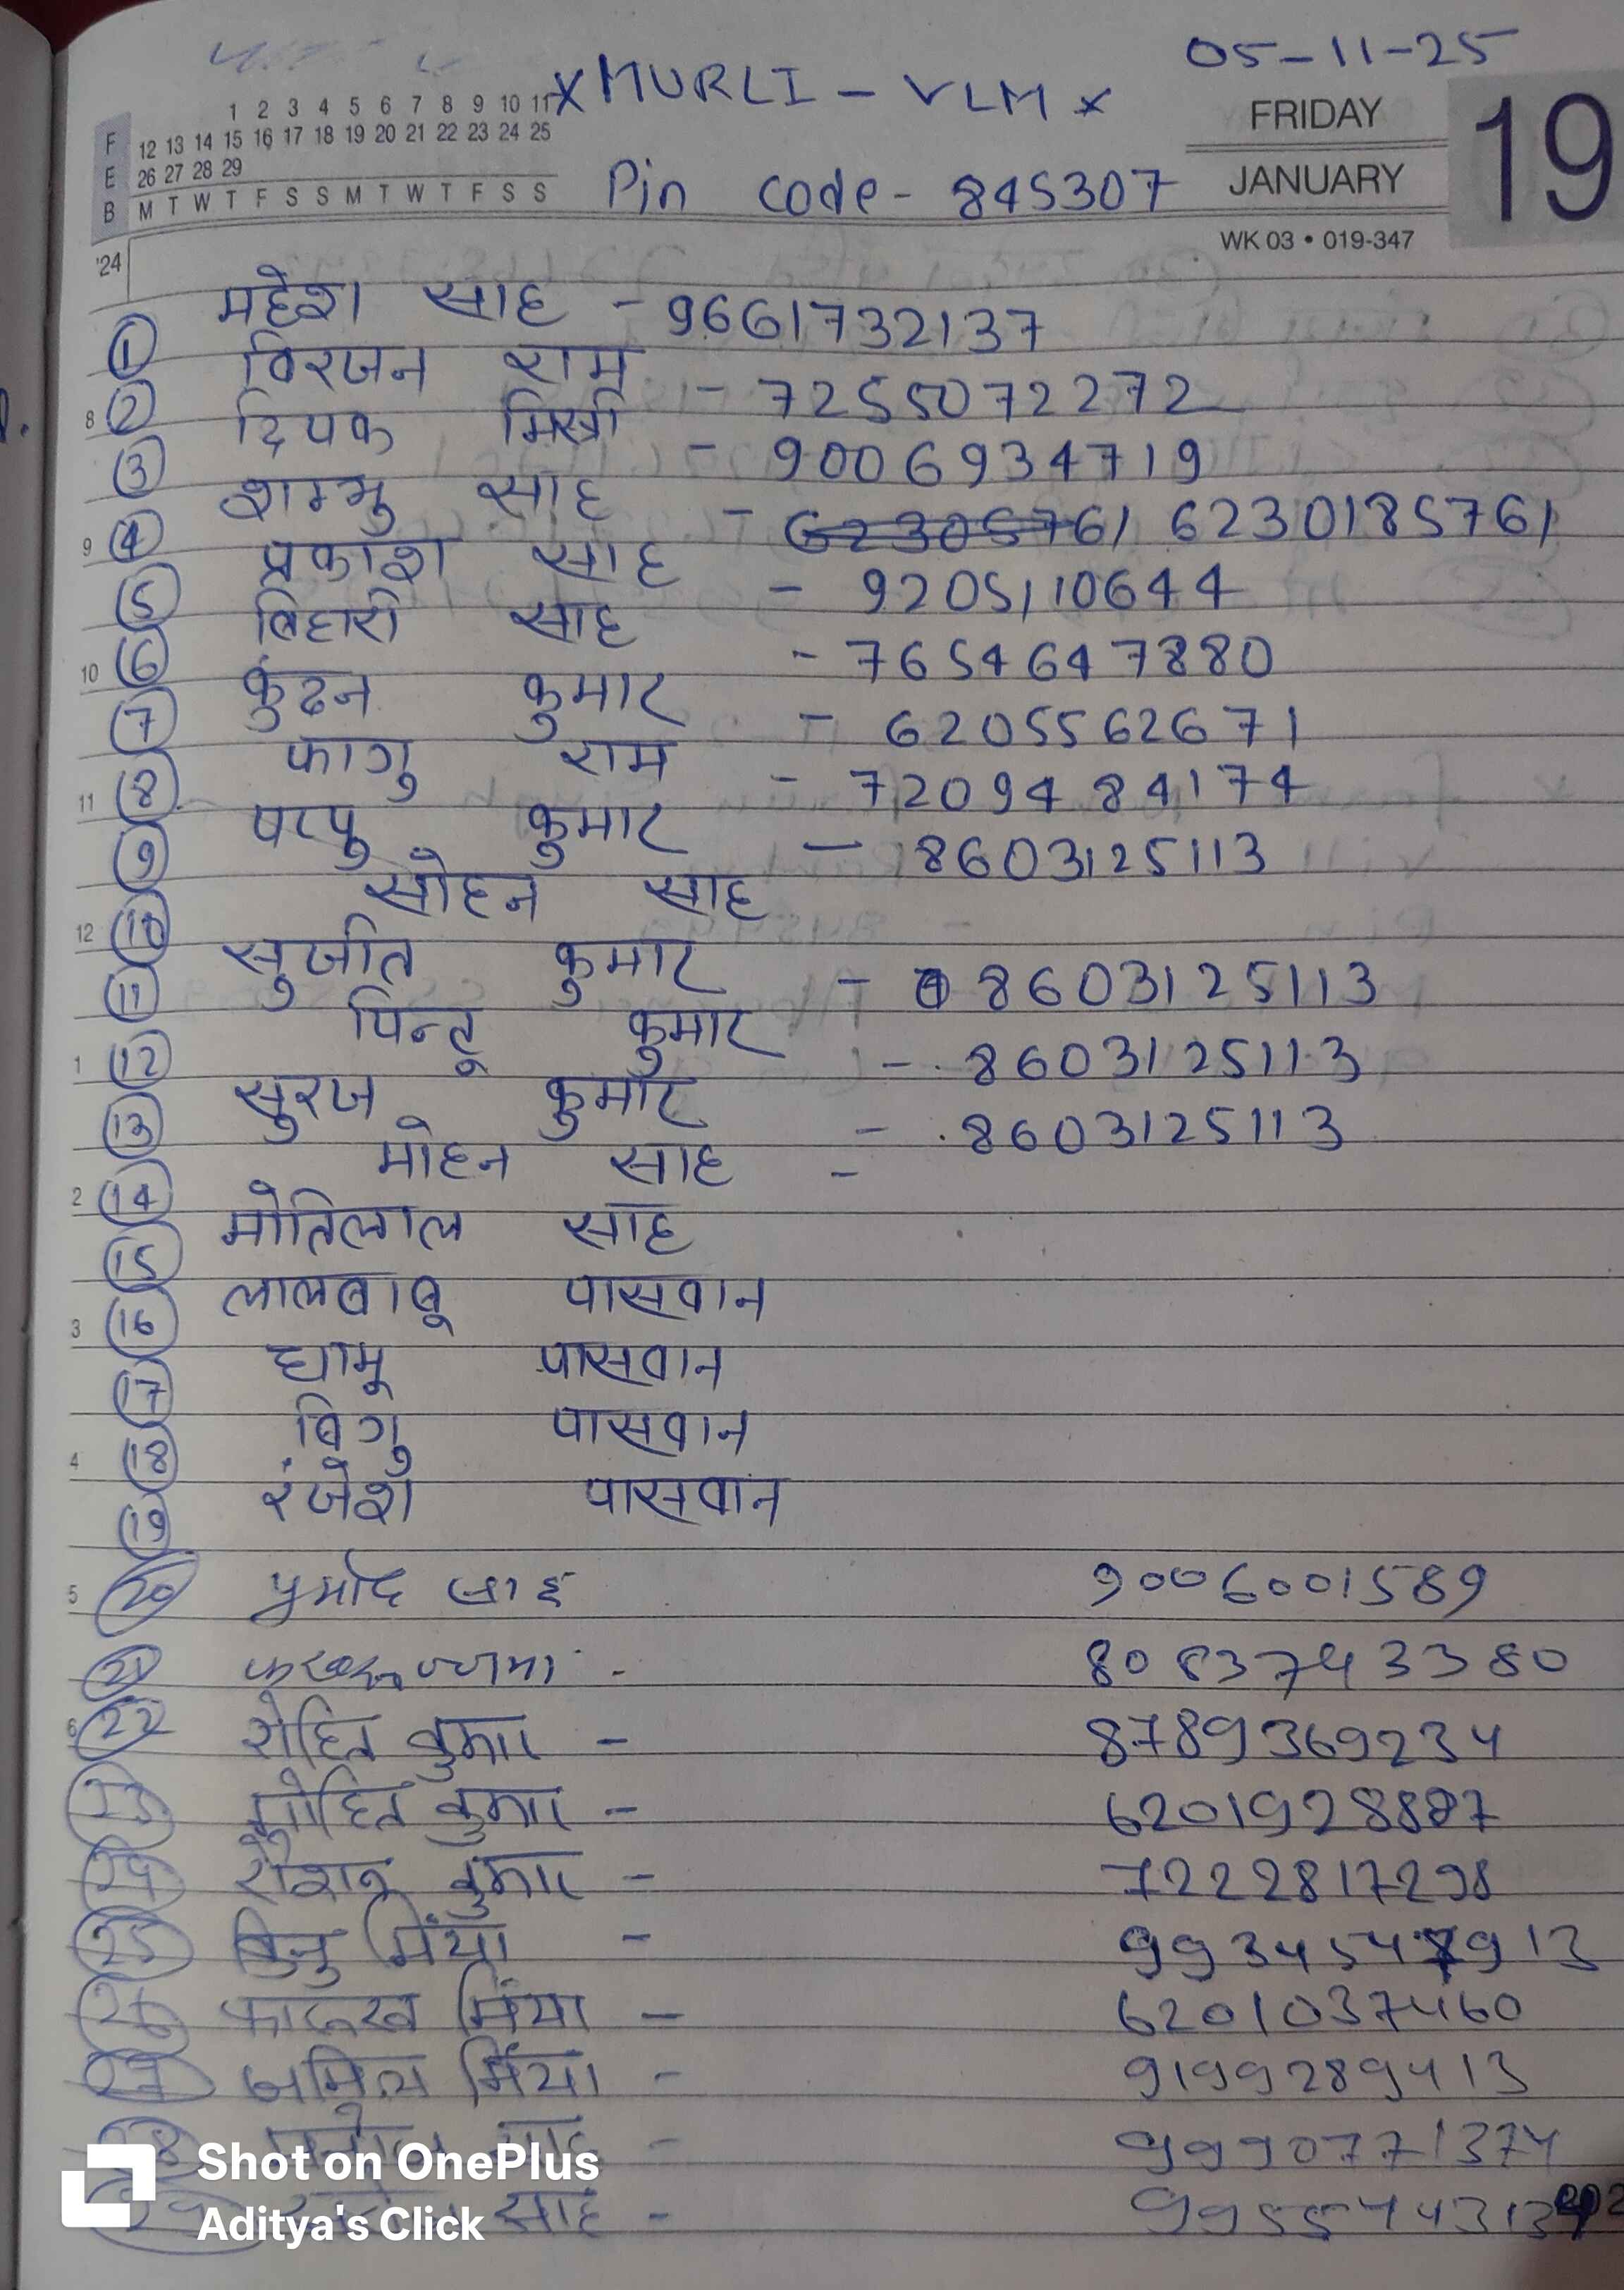 05-11-25
x MURLI - VLM x
1 2 3 4 5 6 7 8 9 10 11
12 13 14 15 16 17 18 19 20 21 22 23 24 25
26 27 28 29
M T W T F S S M T W T F S S
F E B '24
FRIDAY
JANUARY
19
WK 03 • 019-347
Pin code - 845307
① महेश साह - 9661732137
8 ② विरजन राम - 7255072272
③ दिपक मिस्त्री - 9006934719
9 ④ शम्भु साह - 62305761 6230185761
⑤ प्रकाश साह - 9205110644
10 ⑥ बिहारी साह - 7654647880
⑦ कुंदन कुमार - 6205562671
11 ⑧ फागु राम - 7209484174
⑨ पप्पु कुमार - 8603125113
12 ⑩ सोहन साह
⑪ सुजीत कुमार - 8603125113
1 ⑫ पिन्टू कुमार - 8603125113
⑬ सुरज कुमार - 8603125113
2 ⑭ मोहन साह -
⑮ मोतिलाल साह
3 ⑯ लालबाबू पासवान
⑰ पासवान
4 ⑱ बिगु पासवान
⑲ रंजेश पासवान
5 ⑳ प्रमोद साह 9006001589
㉑ - 8083743380
6 ㉒ रोहित कुमार - 8789369234
㉓ मोहित कुमार - 6201928887
㉔ रौशन कुमार - 7222817298
㉕ मिंया -
㉖ फारूख मिंया - 6201037460
㉗ मिंया - 9199289413
㉘ साह - 9990771374
㉙ साह -
Shot on OnePlus
Aditya's Click